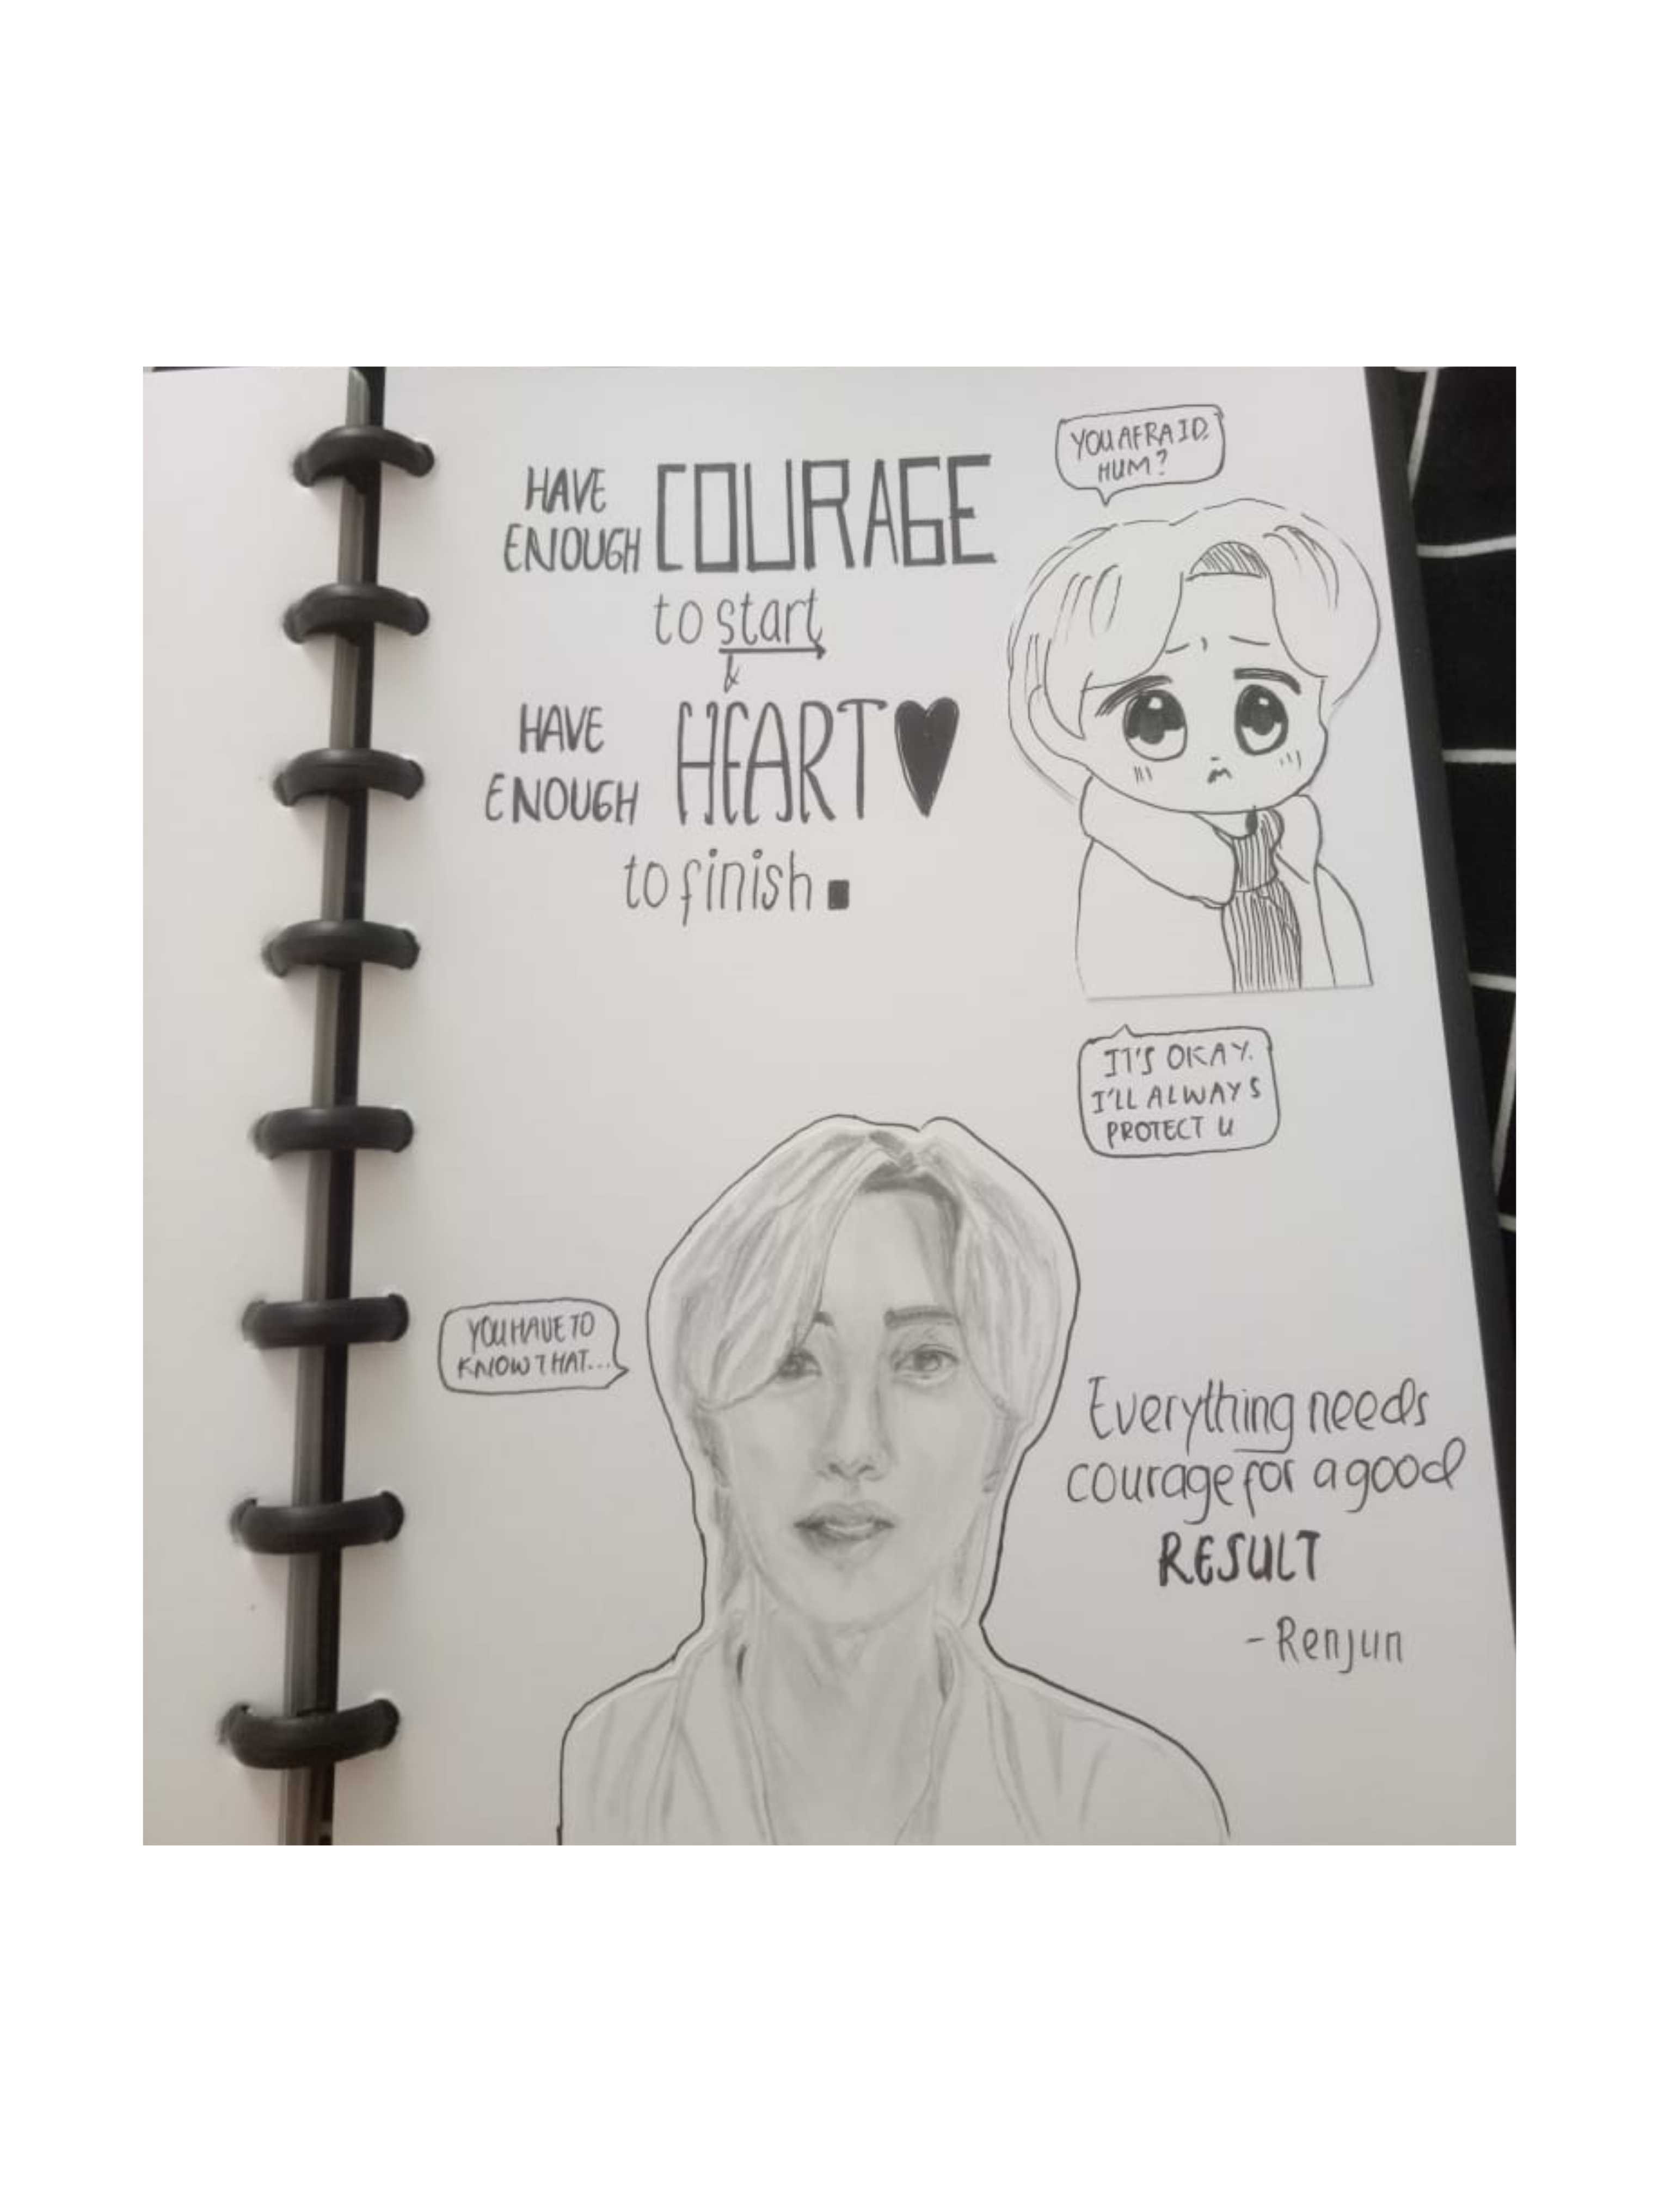 HAVE
ENOUGH COURAGE
to start
&
HAVE
ENOUGH HEART
to finish.
YOU AFRAID.
HUM?
IT'S OKAY.
I'LL ALWAYS
PROTECT U
YOU HAVE TO
KNOW THAT...
Everything needs
courage for a good
RESULT
-Renjun